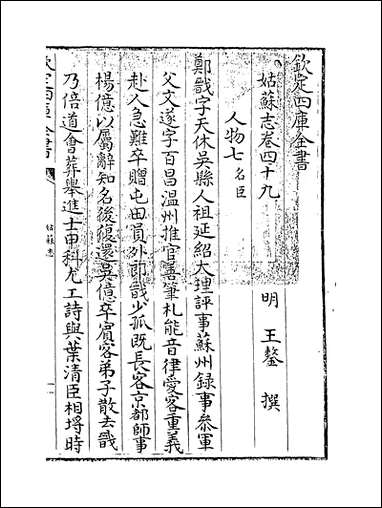 欽定四庫全書
姑蘇志卷四十九
明 王鏊 撰
人物七名臣
鄭戩字天休吳縣人祖延紹大理評事蘇州録事參軍
父文遂字百昌温州推官善筆札能音律愛客重義
赴人急難卒贈屯田員外郎戩少孤既長客京都師事
楊億以屬辭知名後復還吳億卒賓客弟子散去戩
乃倍道會葬舉進士甲科尤工詩與葉清臣相埒時
欽定四庫全書
姑蘇志